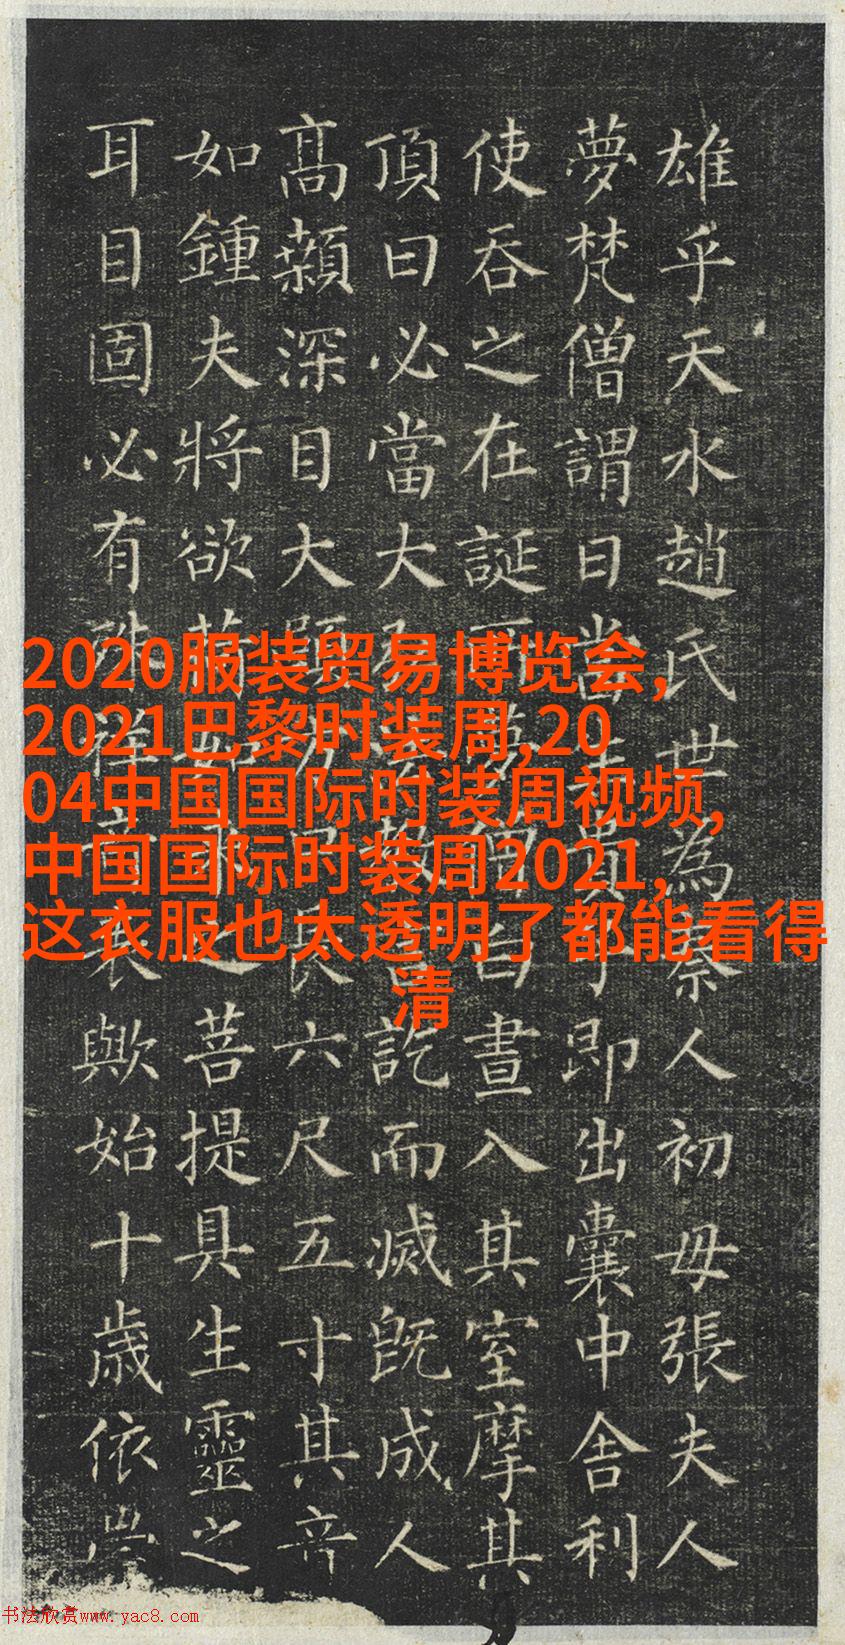 雄乎天水趙氏世為秦人初母張夫人
夢梵僧謂曰當生貴子即出囊中舍利
使吞之在誕所夢僧白晝入其室摩其
頂曰必當大弘法教言訖而滅既成人
高顙深目大頤方口長六尺五寸其音
如鍾夫將欲荷如來之菩提具生靈之
耳目固必有殊祥奇表歟始十歲依
2020服装贸易博览会,
2021巴黎时装周,20
04中国国际时装周视频,
中国国际时装周2021,
这衣服也太透明了都能看得
清
书法欣赏www.yac8.com